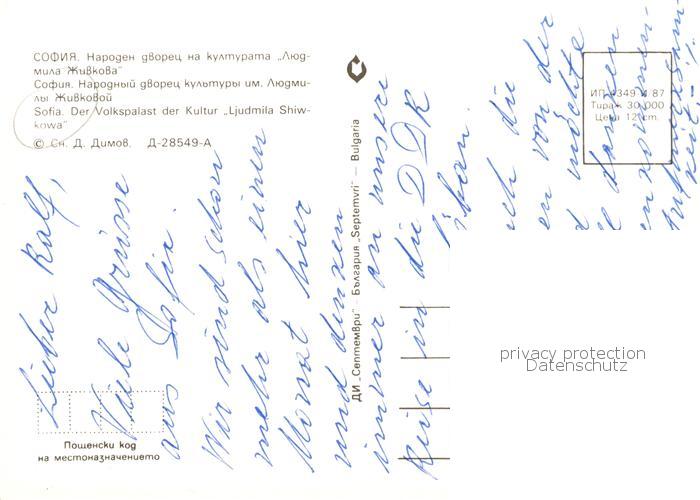 СОФИЯ. Народен дворец на културата „Люд-
мила Живкова"
София. Народный дворец культуры им. Людми-
лы Живковой
Sofia. Der Volkspalast der Kultur „Ljudmila Shiw-
kowa"
© Сн. Д. Димов. Д-28549-А
ИП 4349 И 87
Тираж 30 000
Цена 12 ст.
ДИ „Септември" – България „Septemvri" – Bulgaria
Пощенски код
на местоназначението
Lieber Ralf,
Viele Grüsse
aus Sofia.
Wir sind schon
mehr als einen
Monat hier
und denken
immer an unsere
Reise in die DDR
ich die
von der
möchte
danken
privacy protection
Datenschutz